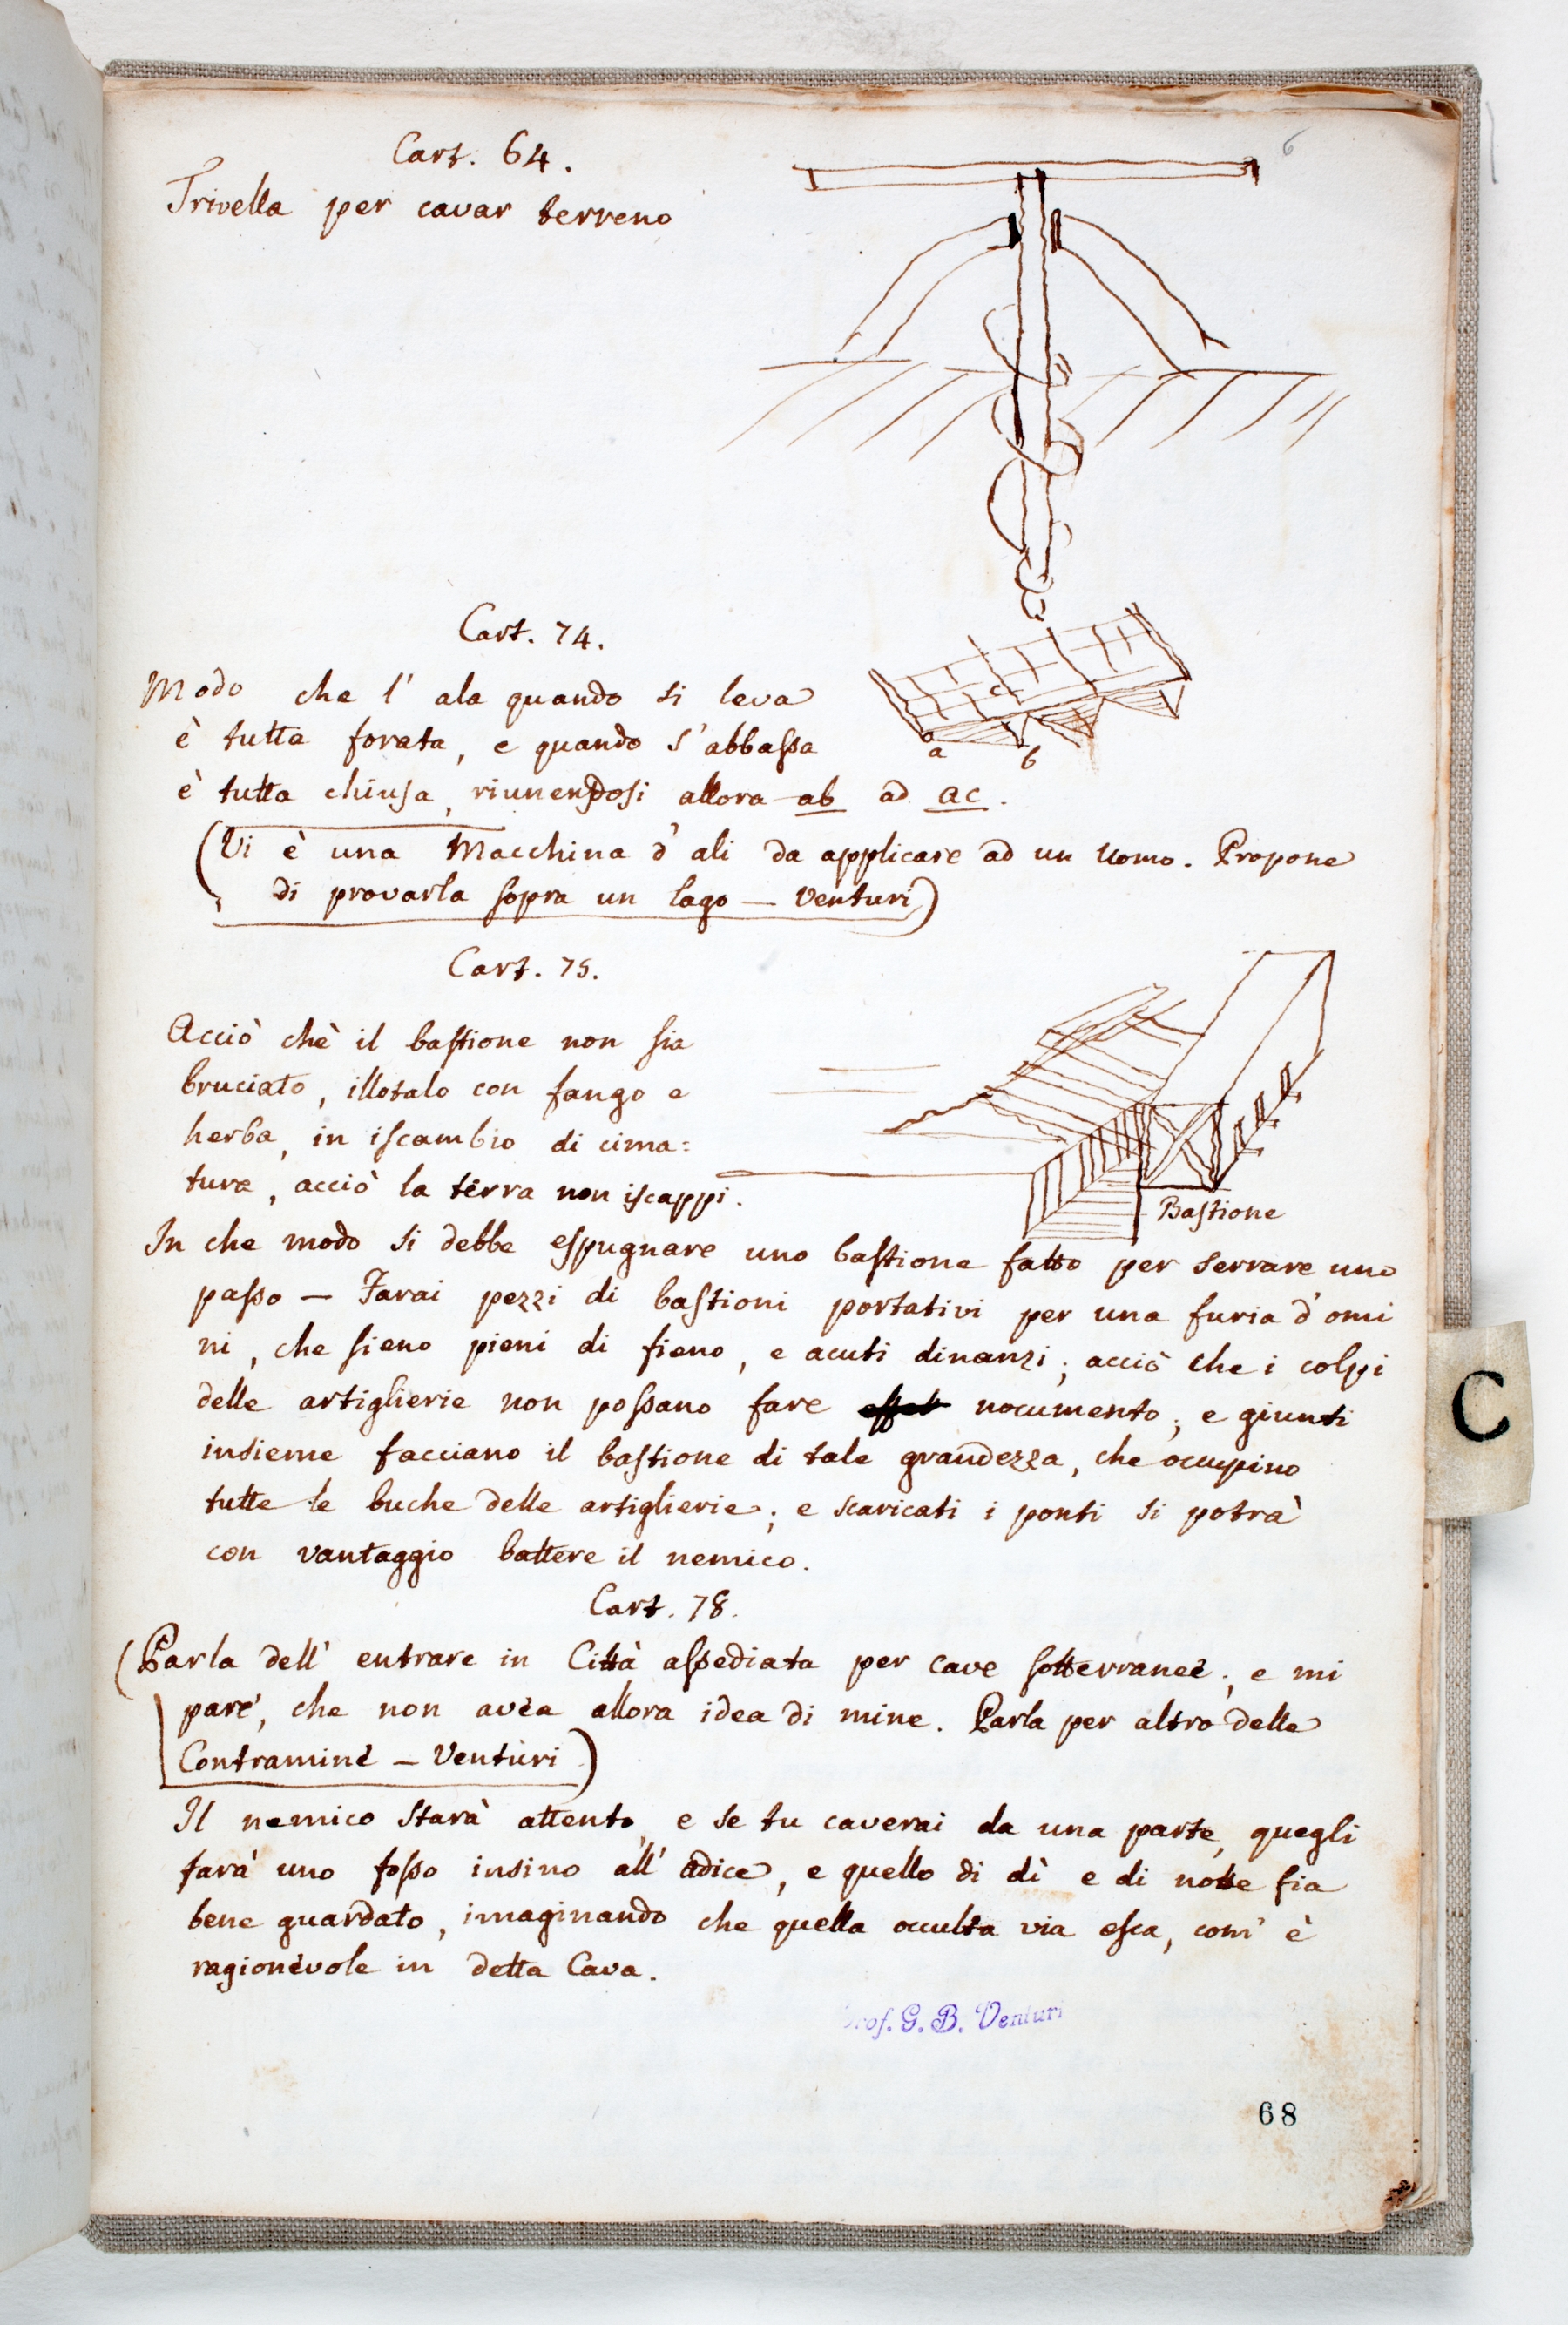 6
Cart. 64.
Trivella per cavar terreno
Cart. 74.
Modo che l' ala quando si leva
è tutta forata, e quando s'abbaſsa
è tutta chiuſa, riunendoſi allora ab ad ac.
c
a
b
(Vi è una Macchina d' ali da applicare ad un Uomo. Propone
di provarla ſopra un lago — Venturi)
Cart. 75.
Acciò chè il baſtione non ſia
bruciato, illotalo con fango e
herba, in iſcambio di cima:
tura, acciò la terra non iſcappi.
Baſtione
In che modo si debbe eſpugnare uno baſtione fatto per serrare uno
paſso — Farai pezzi di baſtioni portativi per una furia d'omi
ni, che ſieno pieni di fieno, e acuti dinanzi; acciò che i colpi
delle artiglierie non poſsano fare effet nocumento; e giunti
insieme facciano il baſtione di tale grandezza, che occupino
tutte le buche delle artiglierie; e scaricati i ponti si potrà
con vantaggio battere il nemico.
Cart. 78.
(Parla dell' entrare in Città aſsediata per cave ſotterranee; e mi
pare, che non avea allora idea di mine. Parla per altro delle
Contramine — Venturi)
Il nemico starà attento, e se tu caverai da una parte, quegli
farà uno foſso insino all' adice, e quello di dì e di notte ſia
bene guardato, imaginando che quella occulta via eſca, com' è
ragionevole in detta Cava.
Prof. G. B. Venturi
68
C